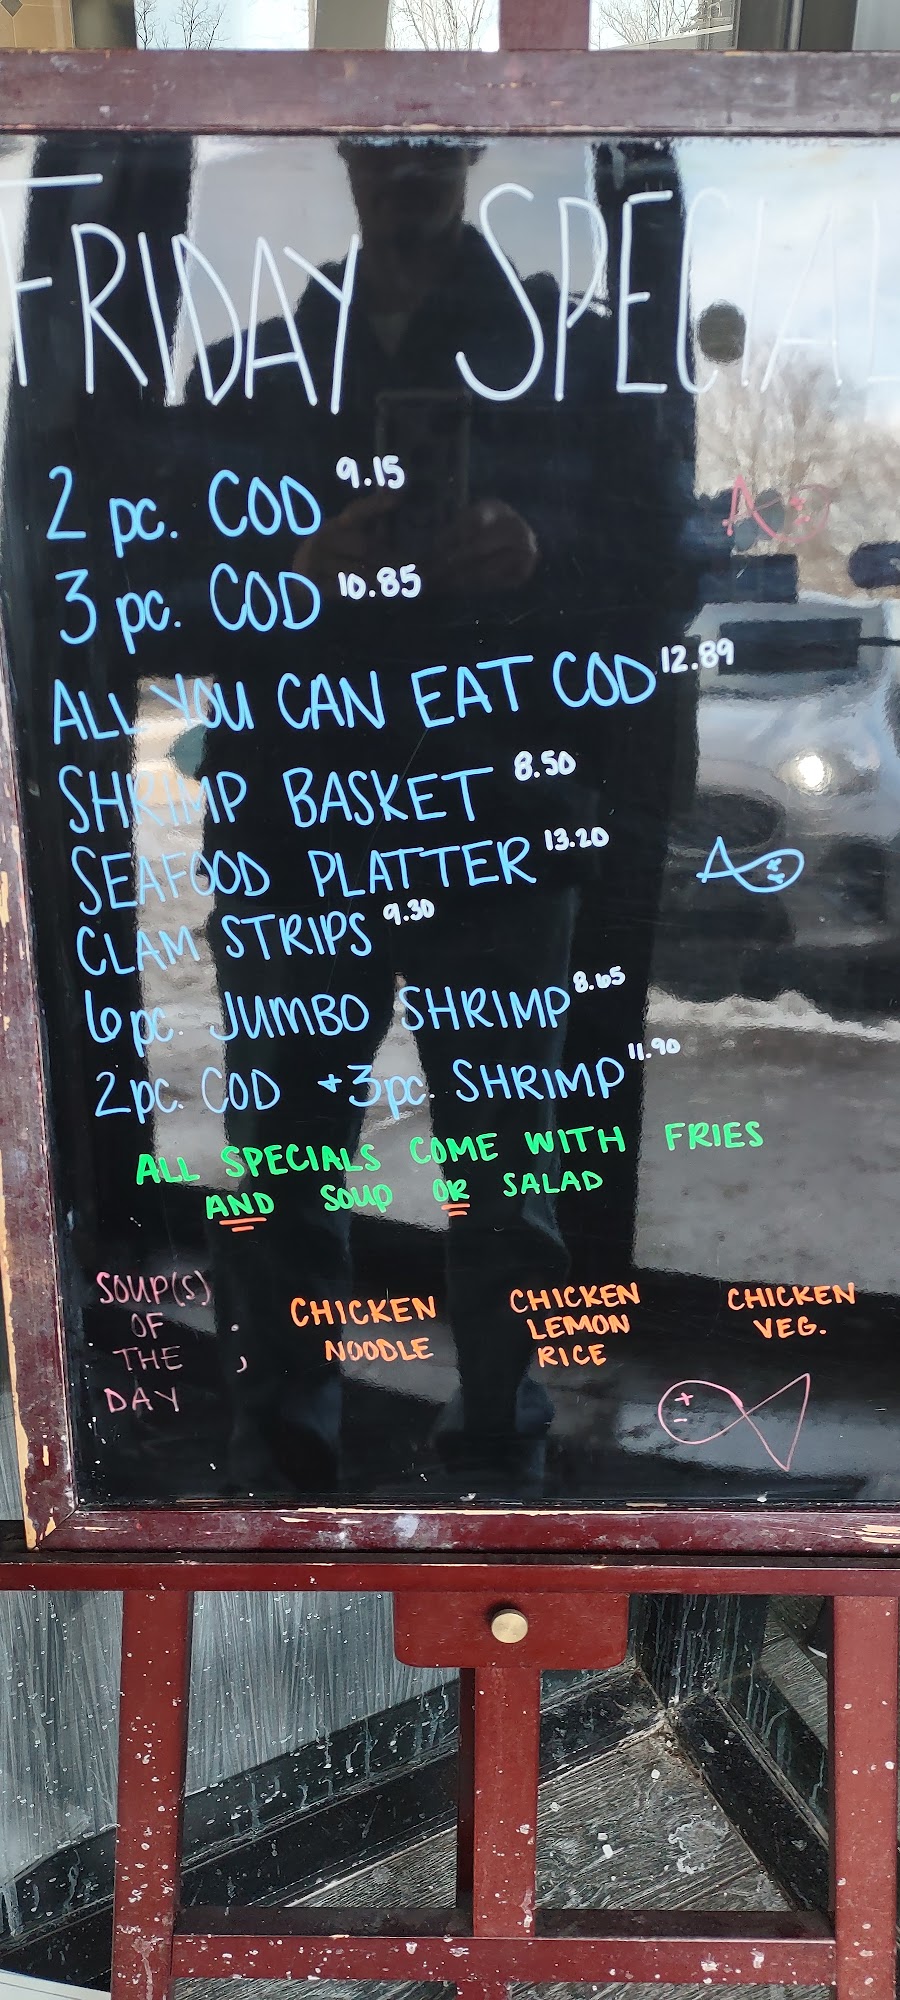 FRIDAY SPECIAL
2 pc. COD 9.15
3 pc. COD 10.85
ALL YOU CAN EAT COD 12.89
SHRIMP BASKET 8.50
SEAFOOD PLATTER 13.20
CLAM STRIPS 9.30
6 pc. JUMBO SHRIMP 8.65
2 pc. COD + 3 pc. SHRIMP 11.90
ALL SPECIALS COME WITH FRIES
AND SOUP OR SALAD
SOUP(S)
OF
THE
DAY
CHICKEN
NOODLE
CHICKEN
LEMON
RICE
CHICKEN
VEG.